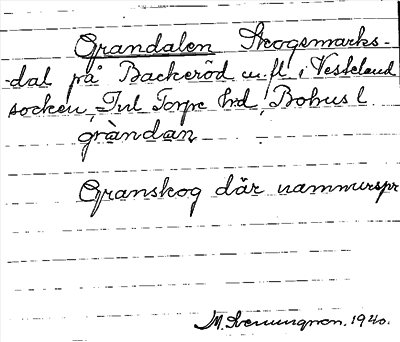 Grandalen Skogsmarks-
dal på Backeröd m.fl. i Vesteland
socken, Inl Torpe hd, Bohusl.
gràndan
Granskog där
1940.